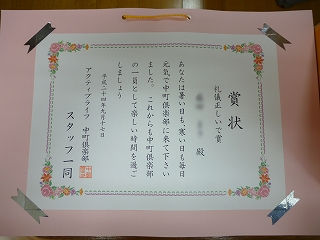 賞状
礼儀正しいで賞
殿
あなたは暑い日も、寒い日も毎日
元気で中町倶楽部に来て下さい
ました。これからも中町倶楽部
の一員として楽しい時間を過ご
しましょう
平成二十四年九月十七日
アクティブライフ 中町倶楽部
スタッフ一同